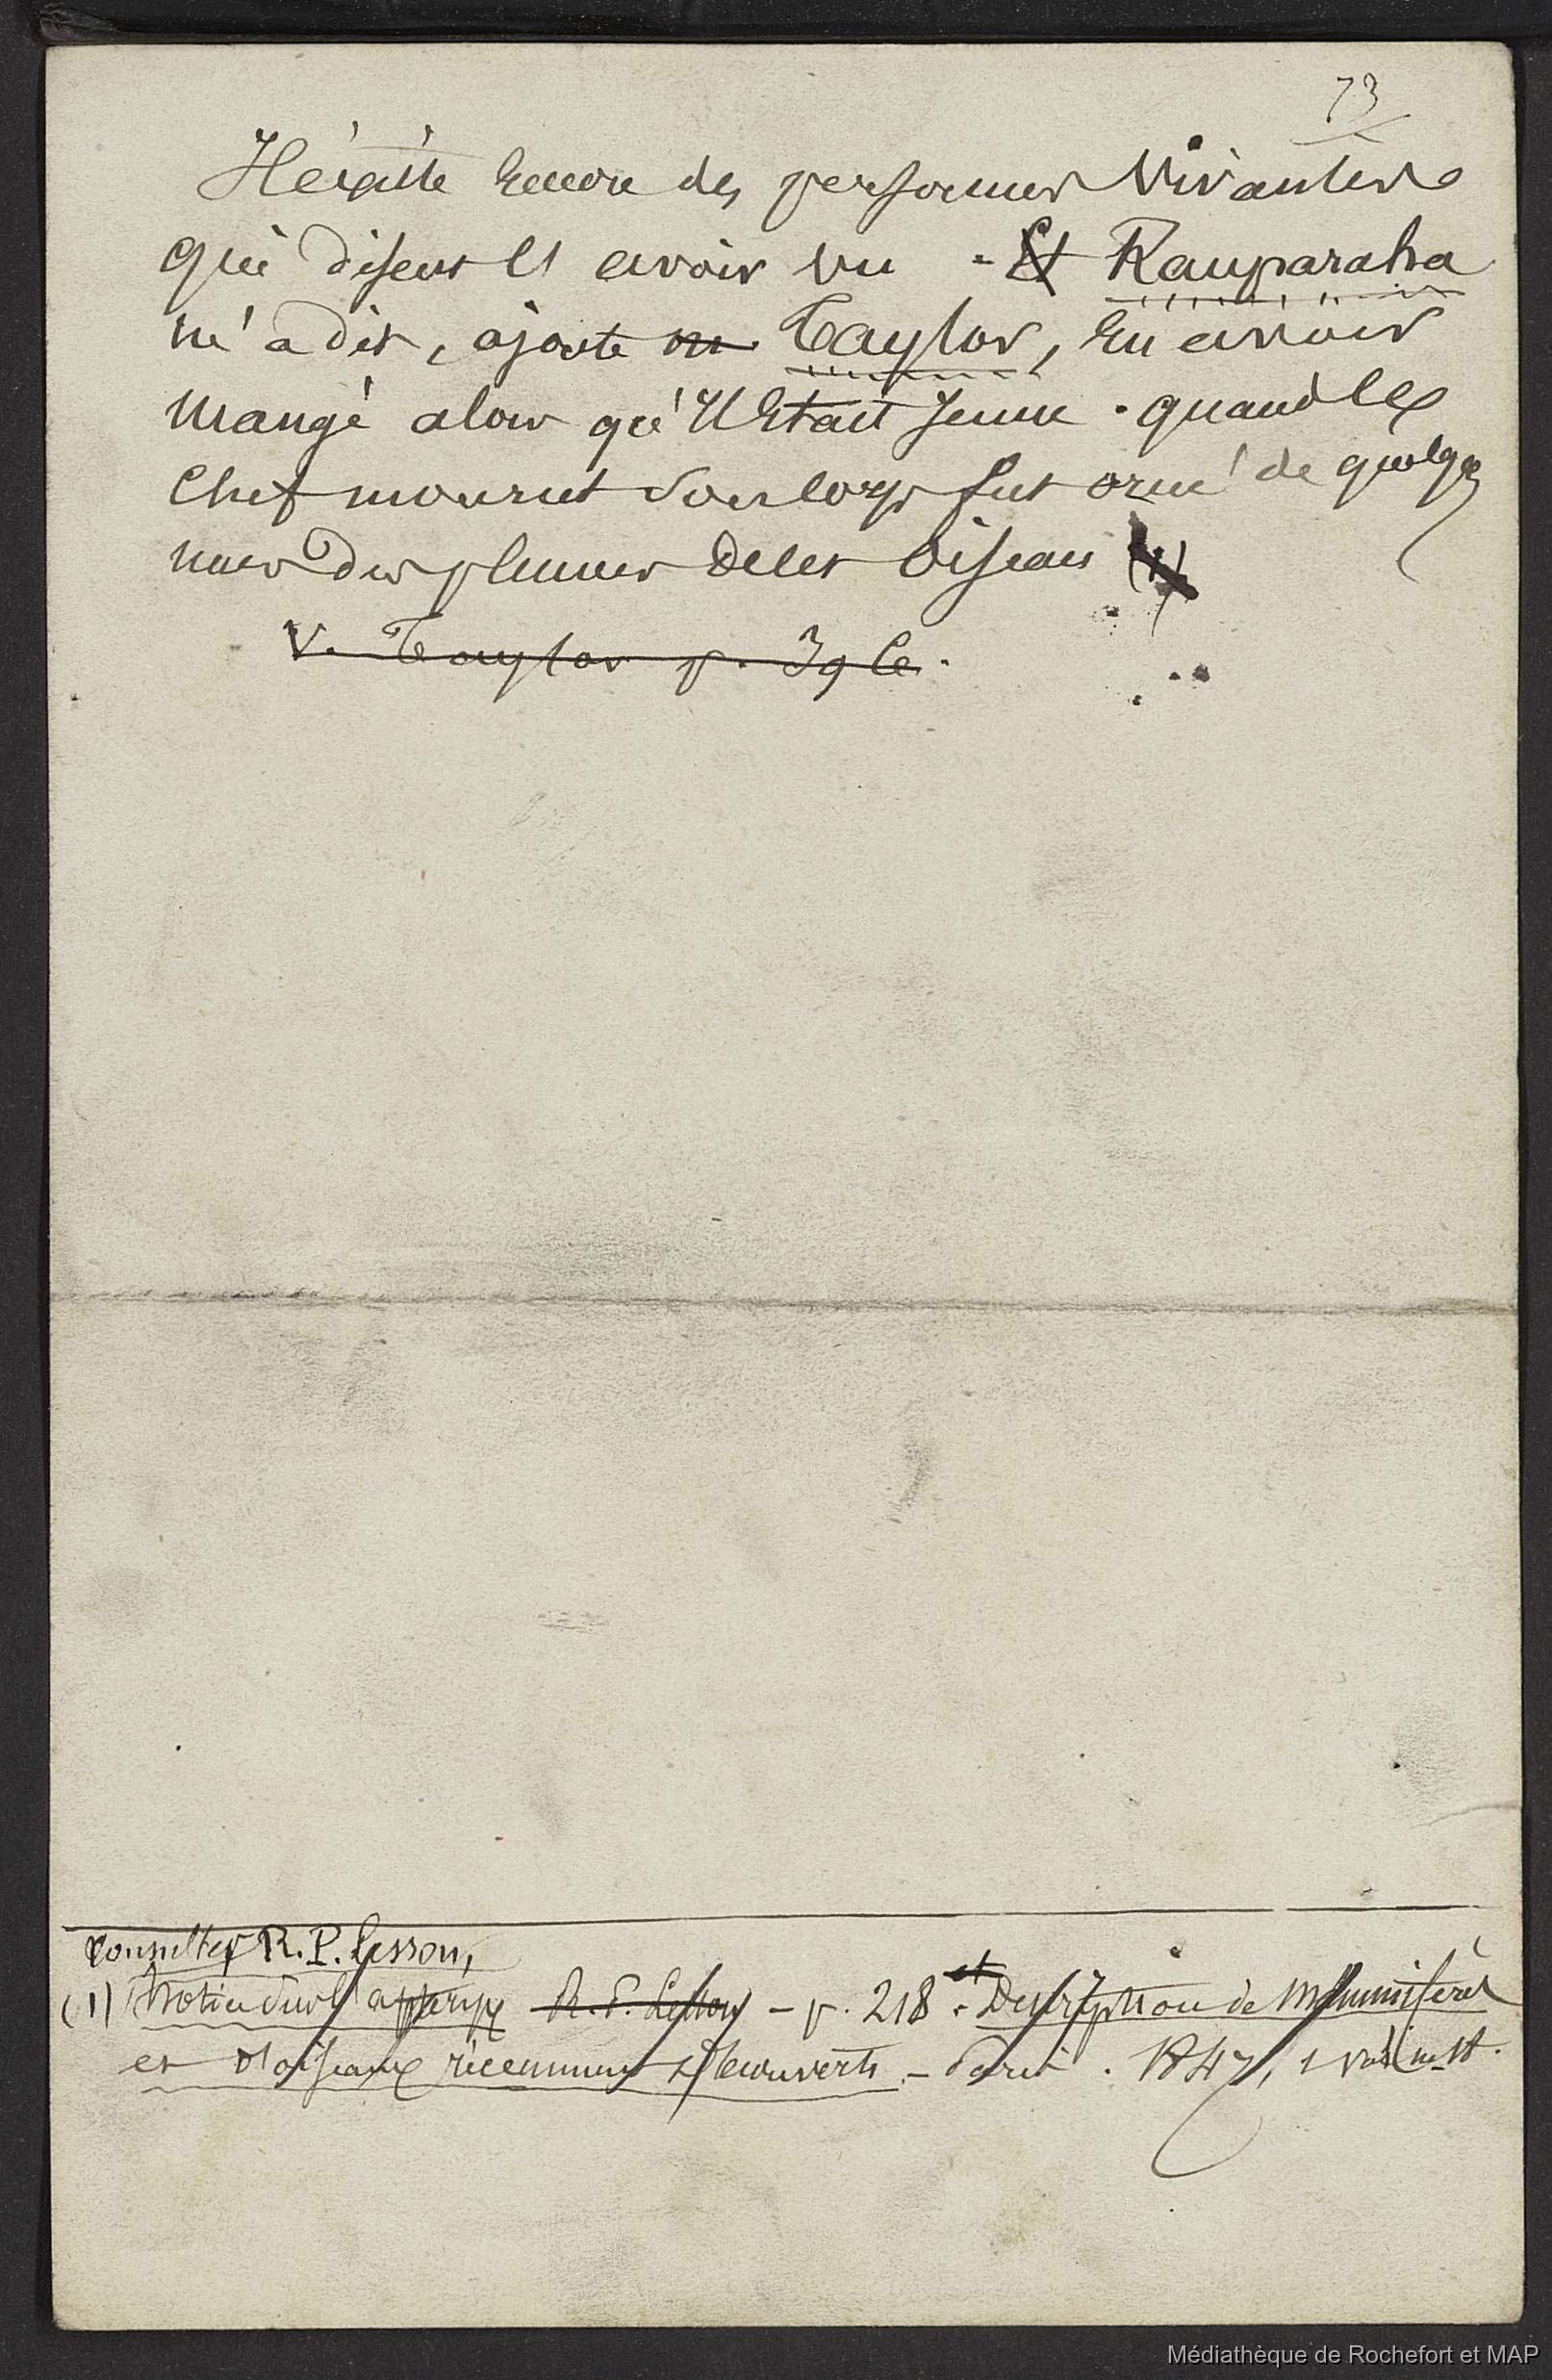 73
Il existe encore des personnes vivantes
qui disent l'avoir vu - Et Rauparaha
m'a dit, ajoute Taylor, en avoir
mangé alors qu'il était jeune. quand le
chef mourut son corps fut orné de quelq
unes des plumes de cet oiseau (1)
V. Taylor p. 396.
consulter R. P. Lesson,
(1) Notice sur l'apterix R. P. Lesson - p. 218. et Description de Mammifères
et d'oiseaux récemment découverts. - Paris. 1847, 1 vol in-
Médiathèque de Rochefort et MAP